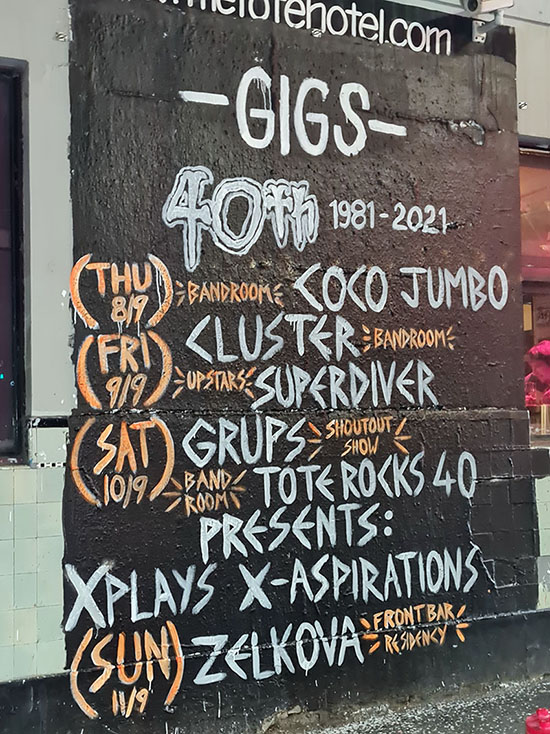 thetotehotel.com
-GIGS-
40th 1981-2021
(THU 8/9) BANDROOM COCO JUMBO
(FRI 9/9) CLUSTER BANDROOM
UPSTARS SUPERDIVER
(SAT 10/9) GRUPS SHOUTOUT SHOW
BAND ROOM TOTE ROCKS 40
PRESENTS:
X PLAYS X-ASPIRATIONS
(SUN 11/9) ZELKOVA FRONT BAR RESIDENCY